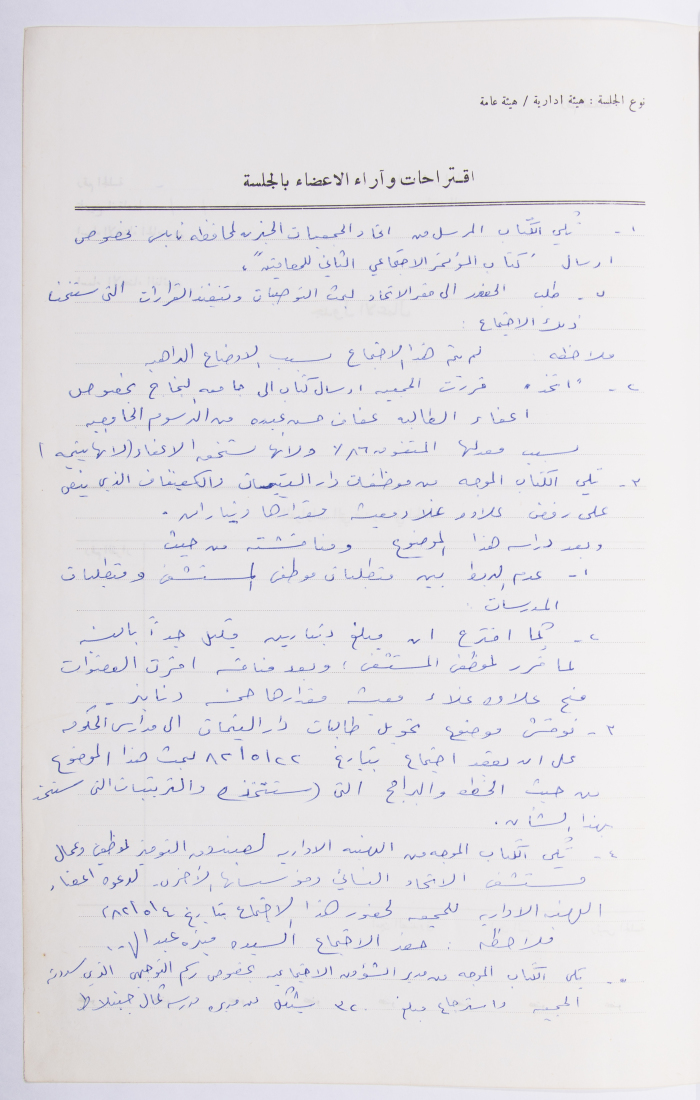 نوع الجلسة : هيئة ادارية / هيئة عامة
اقتراحات وآراء الاعضاء بالجلسة
١- تُلي الكتاب المرسل من اتحاد الجمعيات الخيرية لمحافظة نابلس بخصوص
ارسال "كتاب المؤتمر الاجتماعي الثاني للمعاقين"،
طلب الحضور الى مقر الاتحاد لبحث التوصيات وتنفيذ القرارات التي ستتخذ
ذلك الاجتماع :
ملاحظة : لم يتم هذا الاجتماع بسبب الاوضاع الراهنة
٢- "اتخذ" قررت الجمعية ارسال كتاب الى جامعة النجاح بخصوص
اعفاء الطالبة عفاف حسن عبده من الرسوم الجامعية
بسبب معدلها المتفوق ٨٦٪ ولانها تستحق الاعفاء (لانها يتيمة)
٣- تلي الكتاب الموجه من موظفات دار اليتيمات والكفيفات الذي ينص
على رفض علاوة غلاء معيشة مقدارها ديناران .
وبعد دراسة هذا الموضوع ومناقشته من حيث
١- عدم الربط بين متطلبات موظفي المستشفى ومتطلبات
المدرسات .
٢- كما اقترح ان مبلغ دينارين قليل جداً بالنسبة
لما قرر لموظفي المستشفى ؛ وبعد مناقشة اقترحت العضوات
منح علاوة غلاء معيشة مقدارها خمسة دنانير -
٣- نوقش موضوع تحويل طالبات دار اليتيمات الى مدارس الحكومة
على ان يعقد اجتماع بتاريخ ٨٢/٥/٢٢ لبحث هذا الموضوع
من حيث الخطة والبرامج التي (ستتخذ) والترتيبات التي ستتخذ
بهذا الشأن .
٤- تُلي الكتاب الموجه من اللجنة الادارية لصندوق التوفير لموظفي وعمال
مستشفى الاتحاد النسائي ومؤسساته الأخرى. لدعوة اعضاء
الهيئة الادارية للجمعية لحضور هذا الاجتماع بتاريخ ٨٢/٥/٤
ملاحظة : حضر الاجتماع السيدة
٥- تلي الكتاب الموجه من مدير الشؤون الاجتماعية بخصوص التوجيهي الذي
الجمعية واسترجاع مبلغ ٣٢٠ شيكل من مديرة مدرسة كمال جنبلاط